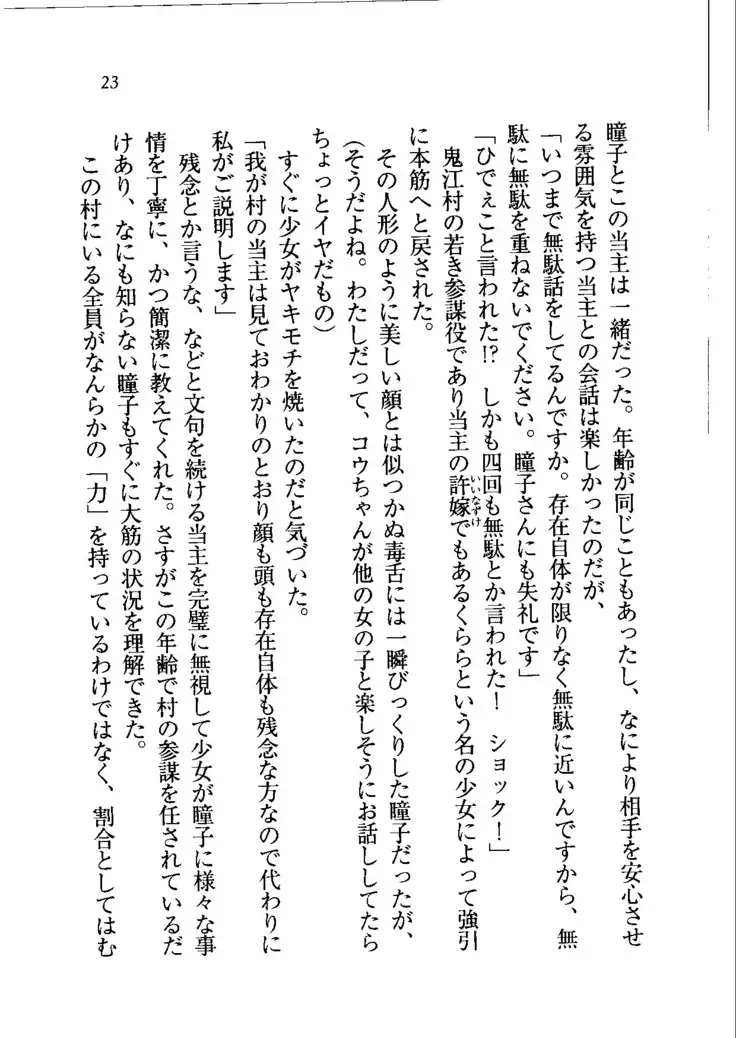 23
瞳子とこの当主は一緒だった。年齢が同じこともあったし、なにより相手を安心させ
る雰囲気を持つ当主との会話は楽しかったのだが、
「いつまで無駄話をしてるんですか。存在自体が限りなく無駄に近いんですから、無
駄に無駄を重ねないでください。瞳子さんにも失礼です」
「ひでぇこと言われた!?　しかも四回も無駄とか言われた！　ショック！」
鬼江村の若き参謀役であり当主の許嫁でもあるくららという名の少女によって強引
いいなずけ
に本筋へと戻された。
その人形のように美しい顔とは似つかぬ毒舌には一瞬びっくりした瞳子だったが、
(そうだよね。わたしだって、コウちゃんが他の女の子と楽しそうにお話ししてたら
ちょっとイヤだもの)
すぐに少女がヤキモチを焼いたのだと気づいた。
「我が村の当主は見ておわかりのとおり顔も頭も存在自体も残念な方なので代わりに
私がご説明します」
残念とか言うな、などと文句を続ける当主を完璧に無視して少女が瞳子に様々な事
情を丁寧に、かつ簡潔に教えてくれた。さすがこの年齢で村の参謀を任されているだ
けあり、なにも知らない瞳子もすぐに大筋の状況を理解できた。
この村にいる全員がなんらかの「力」を持っているわけではなく、割合としてはむ